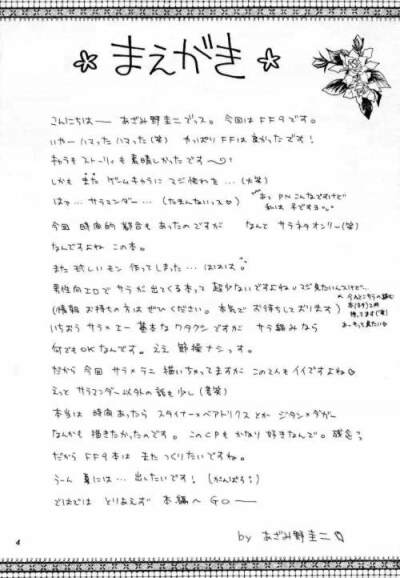 ☆ まえがき ☆
こんにちはー あざみ野圭二でっス。今回はFF9です。
いやーハマったハマった(笑) やっぱりFFは良かったです!
キャラもストーリィも素晴しかったです〜♡
しかも また ゲームキャラに マジ惚れを…(大笑)
はァ…サラマンダー…(たまんないっス♡)
あっ PNこんなですけど
私は 女ですヨ。
今回 時間的 都合も あったのですが なんと サラネタオンリー(笑)
なんですよね この本。
また 珍しいモン 作ってしまった…
男性向エロで サラが 出てくる本って 超少ないですよね
(情報 お持ちの方は ぜひください。本気で お待ちしております)
いちおう サラ×エー 基本な ワタクシですが サラ絡みなら
何でもOKなんです。ええ 節操ナシっす。
だから 今回 サラ×ラニ 描いちゃってますが この2人も イイですよね♡
えっと サラマンダー以外の話も少し(苦笑)
本当は 時間あったら スタイナー×ベアトリクスとか ジタン×ダガー
なんかも 描きたかったのです。このCPも かなり 好きなんで。残念
だから FF9本は また つくりたいですね。
うーん 夏には… 出したいです!(がんばろう!)
ではでは とりあえず 本編へ GOー
by あざみ野圭二♡
4